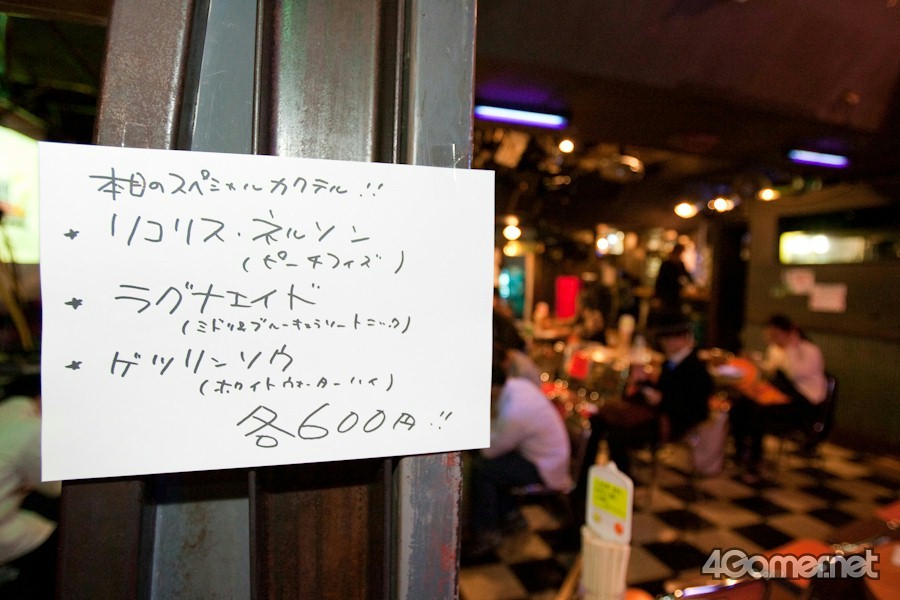 本日のスペシャルカクテル!!
★ リコリス・ネルソン
(ピーチフィズ)
★ ラグナエイド
(ミドリ&ブルーキュラソートニック)
★ ゲツリンソウ
(ホワイトウォーターハイ)
各600円!!
4Gamer.net